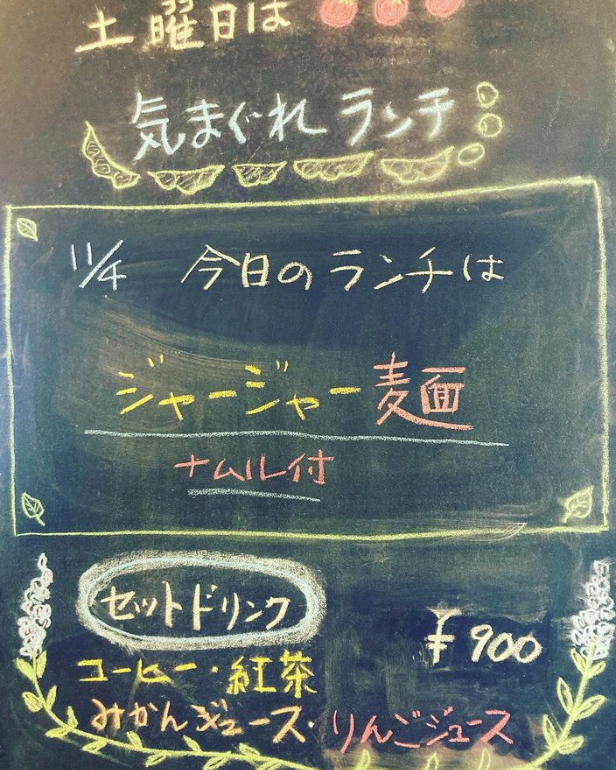 土曜日は
気まぐれランチ
11/4 今日のランチは
ジャージャー麺
ナムル付
セットドリンク
¥900
コーヒー・紅茶
みかんジュース・りんごジュース